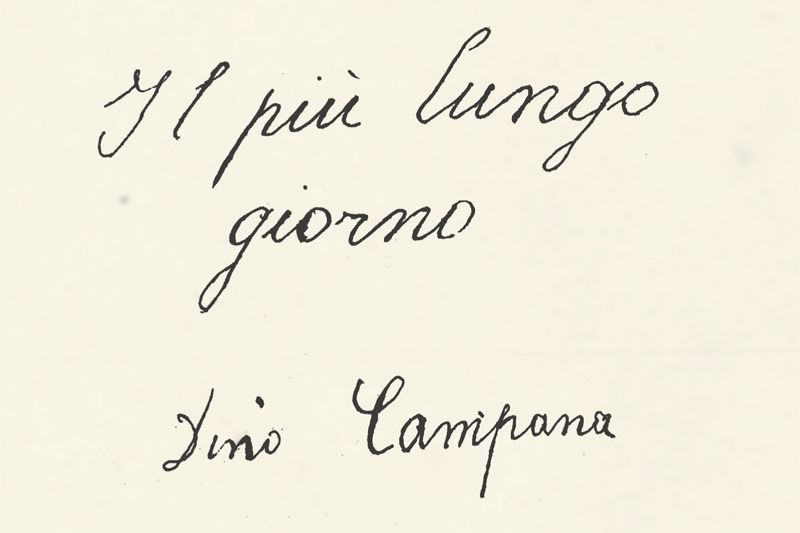 Il più lungo
giorno
Dino Campana